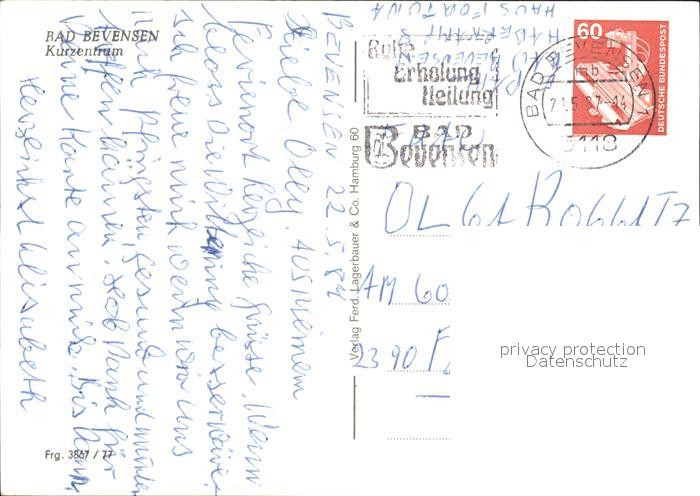 BAD BEVENSEN
Kurzentrum
BEVENSEN 22.5.
Liebe Olly. Aus meinem
Ferienort herzliche Grüsse. Wenn
bloss die Witterung besser wäre.
Ich freue mich wenn wir uns
nach Pfingsten gesund und munter
treffen können. Hab Dank für
Deine Karte und Bis dann,
Herzlichst Elisabeth
Frg. 3867 / 77
Verlag Ferd. Lagerbauer & Co. Hamburg 60
HAUS FORTUNA
BEVENSEN
Ruhe
Erholung
Heilung
BAD
Bevensen
BAD BEVENSEN 1
mb
21.5.
3118
60
DEUTSCHE BUNDESPOST
OLGA ROGGATZ
AM 60
2390 F
privacy protection
Datenschutz